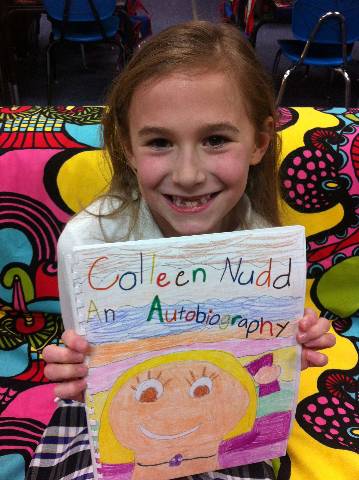 Colleen Nudd
An Autobiography